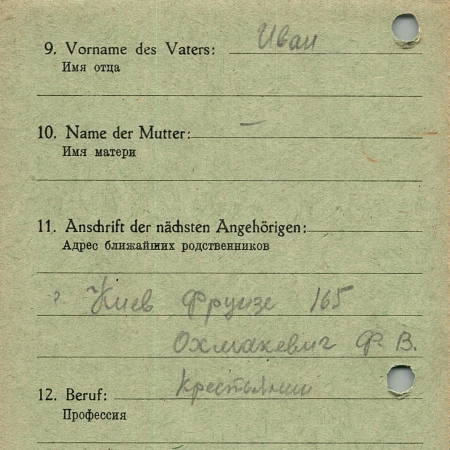 9. Vorname des Vaters: Иван
Имя отца
10. Name der Mutter: —
Имя матери
11. Anschrift der nächsten Angehörigen:
Адрес ближайших родственников
? Киев Фрунзе 165
Охмакевич Ф. В.
12. Beruf: Крестьянин
Профессия